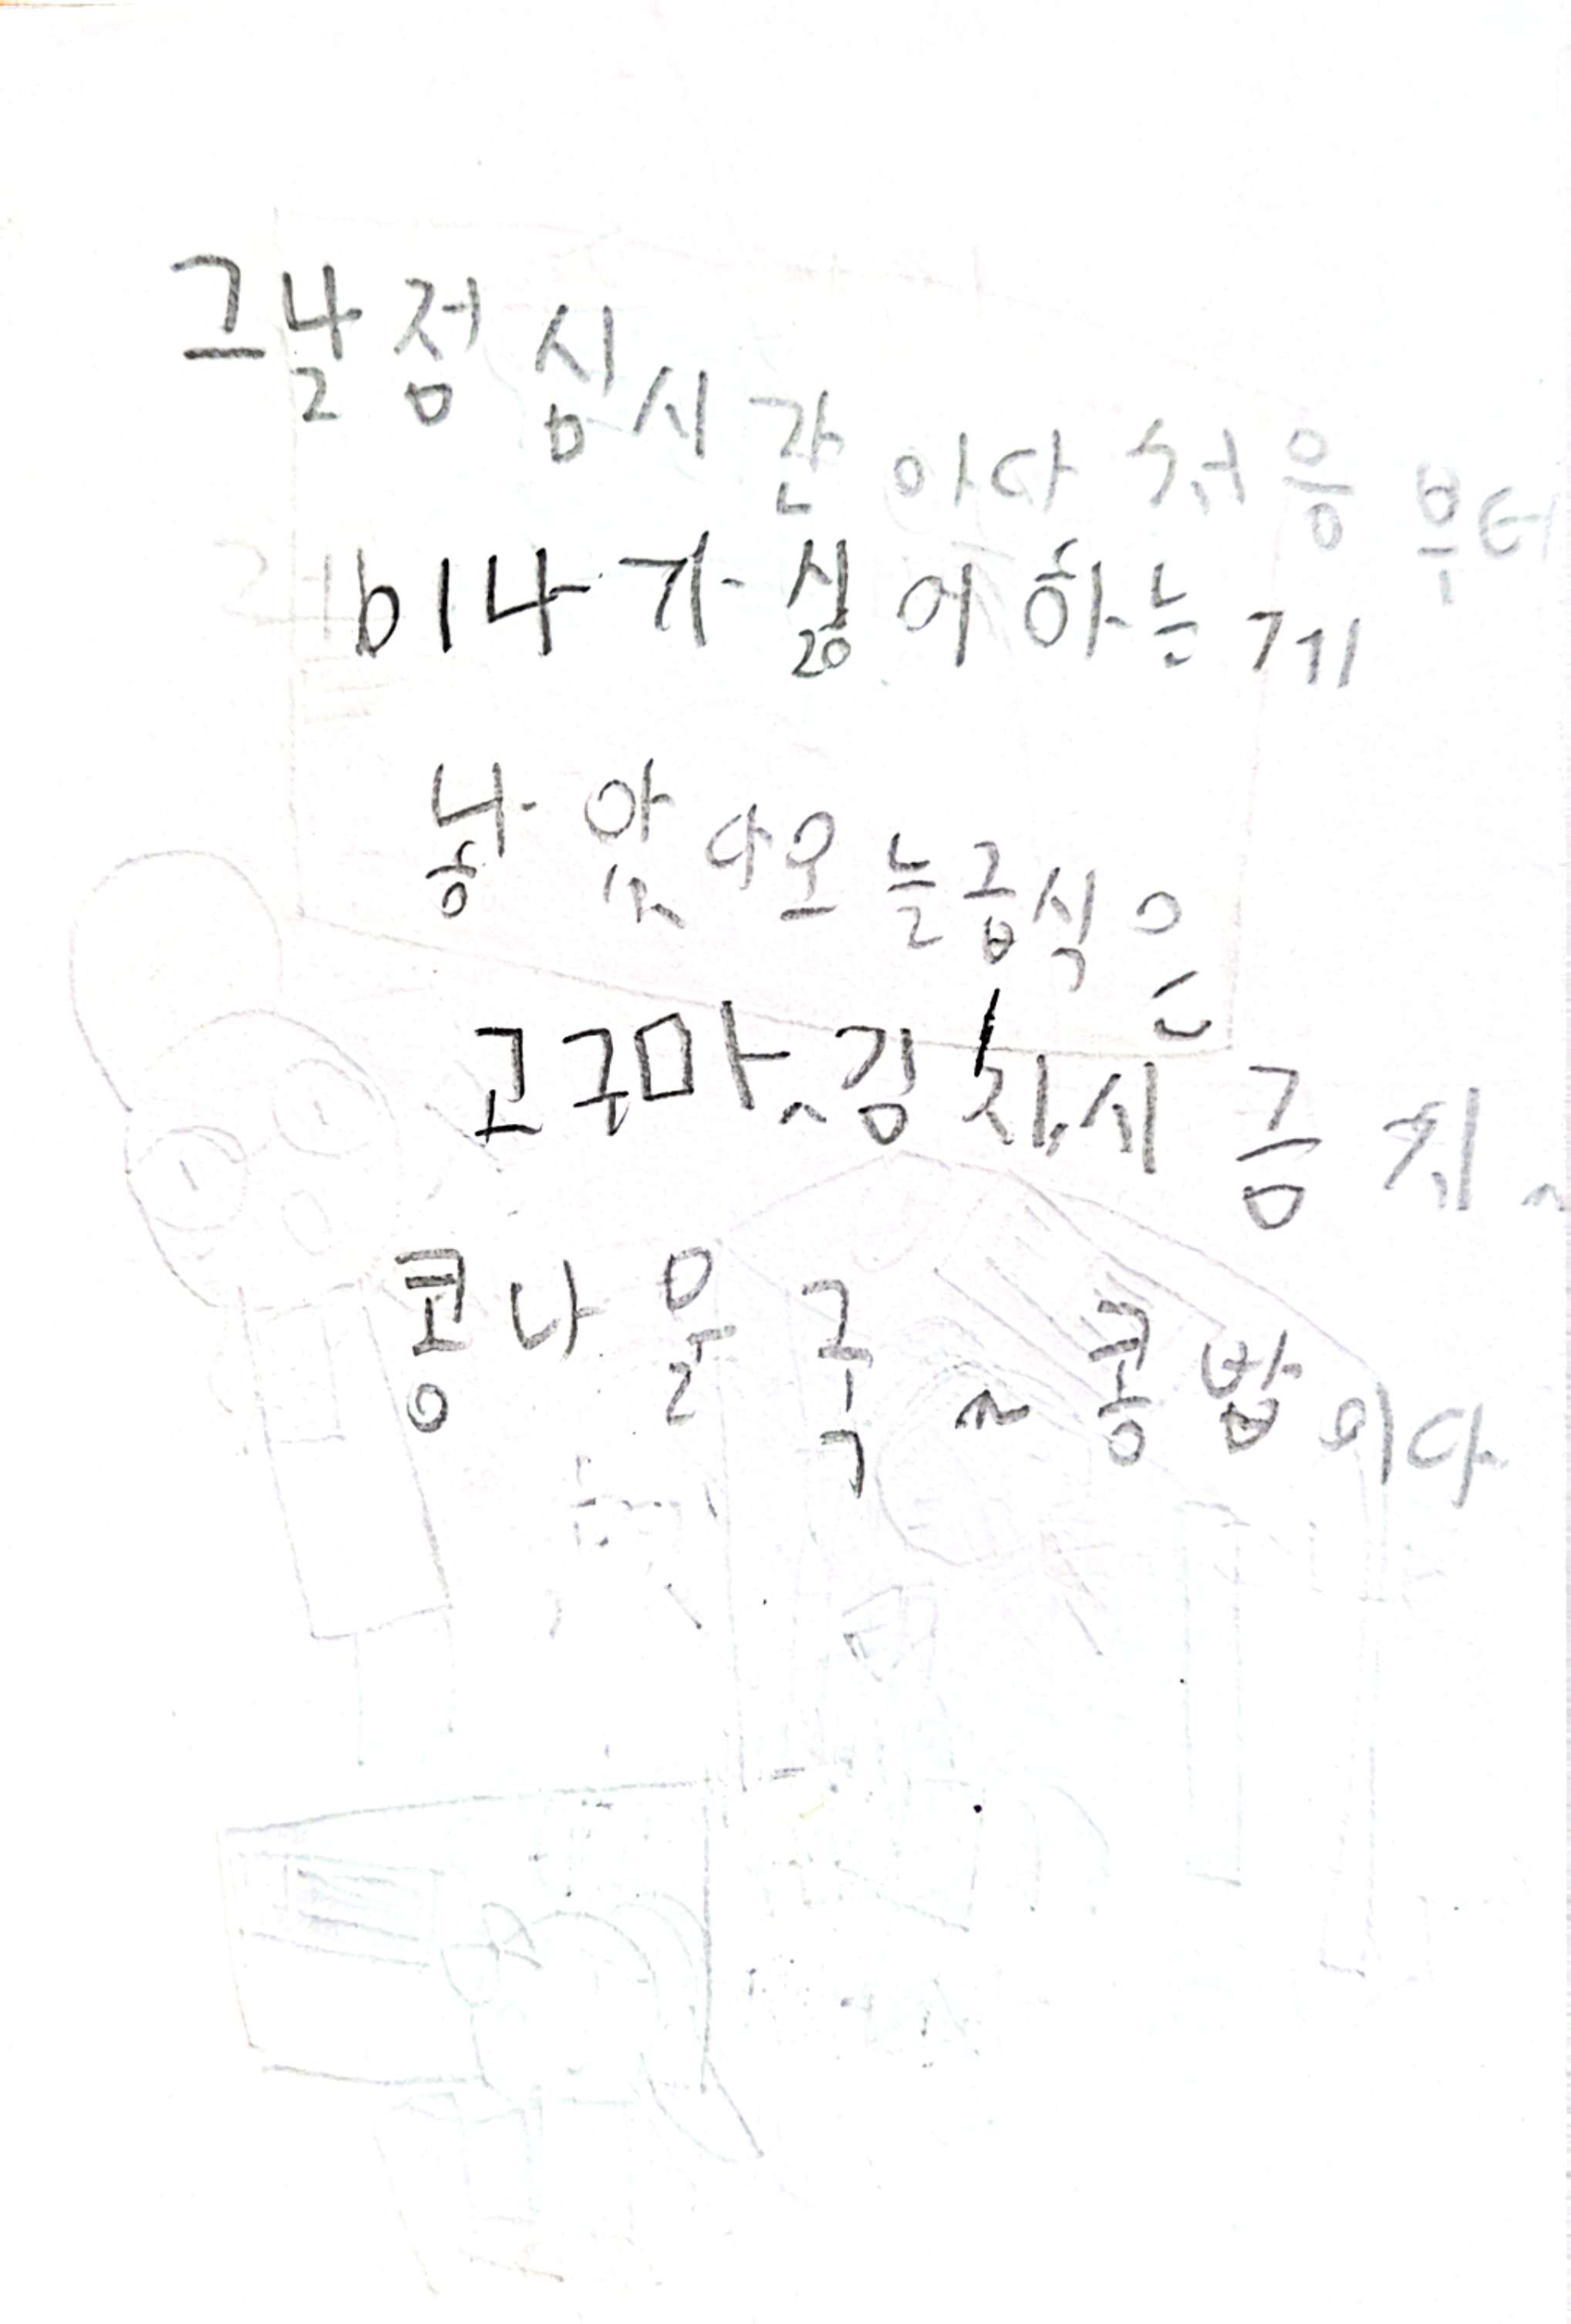 그날 점심시간 이다 처음부터
미나가 싫어하는 게
낳 앗다 오늘 급식은
고구마, 김치, 시금치,
콩나물국, 콩밥이다